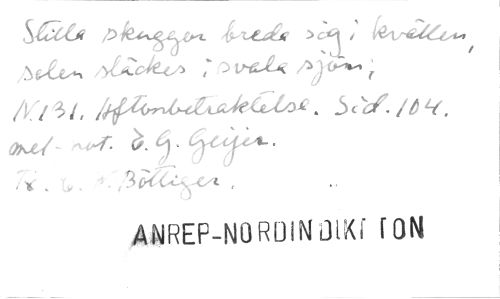 Stilla skuggor breda sig i kvällen,
solen släckes i svala sjön;
N.131. Aftonbetraktelse. Sid. 104.
mel. not. E. G. Geijer.
Tx. C. W. Böttiger.
ANREP-NORDIN DIKT TON